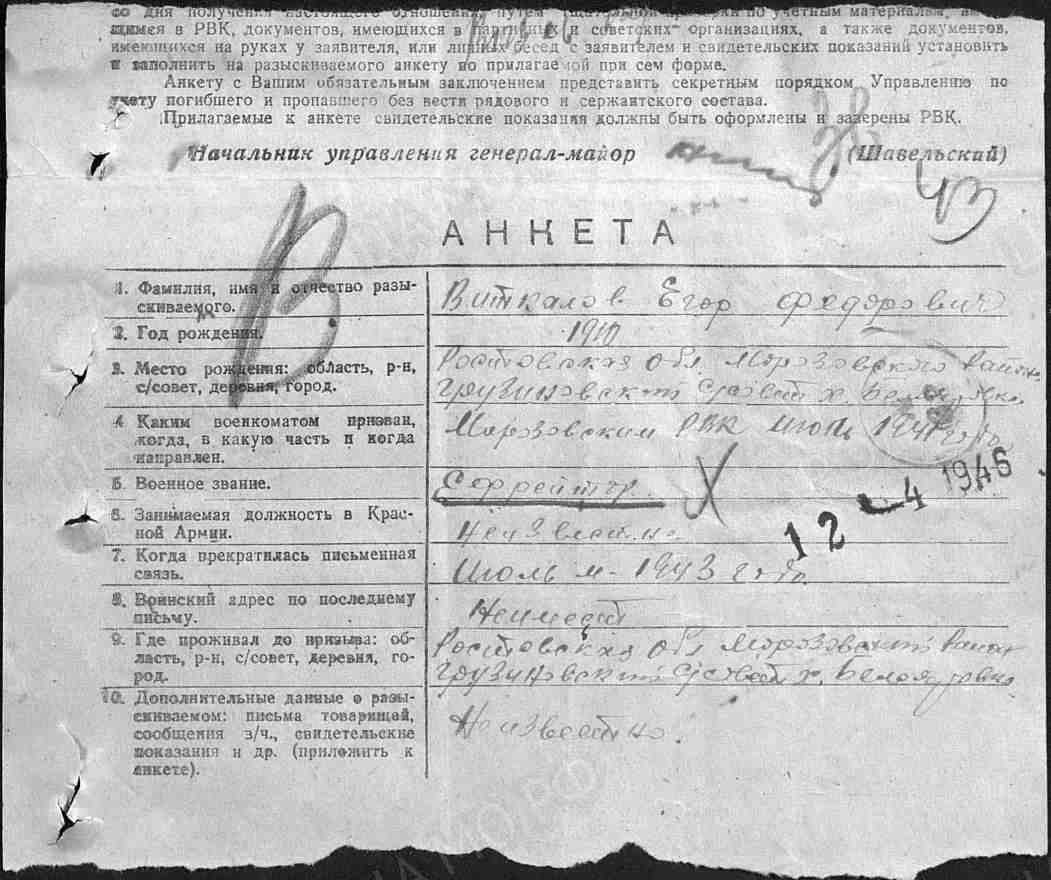 со дня получения настоящего отношения путем тщательной проверки по учетным материалам,
щимся в РВК, документов, имеющихся в партийных и советских организациях, а также документов,
имеющихся на руках у заявителя, или личных бесед с заявителем и свидетельских показаний установить
и заполнить на разыскиваемого анкету по прилагаемой при сем форме.
Анкету с Вашим обязательным заключением представить секретным порядком Управлению по
учету погибшего и пропавшего без вести рядового и сержантского состава.
Прилагаемые к анкете свидетельские показания должны быть оформлены и заверены РВК.
28
Начальник управления генерал-майор (Шавельский)
43
В
АНКЕТА
1. Фамилия, имя и отчество разы-
скиваемого.
Виткалов Егор Федорович
2. Год рождения.
1910
3. Место рождения: область, р-н,
с/совет, деревня, город.
Ростовская обл Морозовского район
Грузиновский с/совет х.
4. Каким военкоматом призван,
когда, в какую часть и когда
направлен.
Морозовским РВК июль 1941 года
5. Военное звание.
Ефрейтор.
12 4 1946
6. Занимаемая должность в Крас-
ной Армии.
Неизвестно
7. Когда прекратилась письменная
связь.
Июль м- 1943 года.
8. Воинский адрес по последнему
письму.
Неимеет
9. Где проживал до призыва: об-
ласть, р-н, с/совет, деревня, го-
род.
Ростовская обл Морозовский район
Грузиновский с/совет х.
10. Дополнительные данные о разы-
скиваемом: письма товарищей,
сообщения з/ч., свидетельские
показания и др. (приложить к
анкете).
Неизвестно.